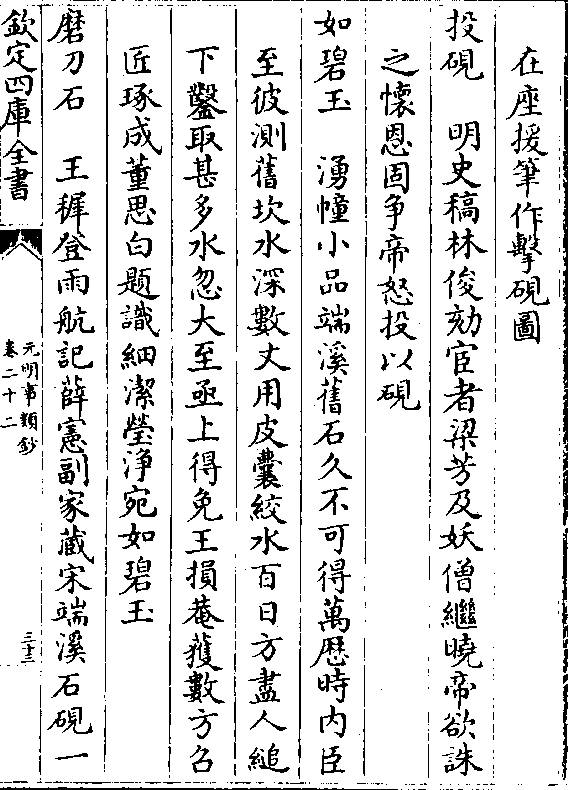 在座援筆作擊硯圖
投硯　明史稿林俊劾宦者梁芳及妖僧繼曉帝欲誅
之懷恩固争帝怒投以硯
如碧玉　湧幢小品端溪舊石久不可得萬厯時内臣
至彼測舊坎水深數丈用皮囊絞水百日方盡人縋
下鑿取甚多水忽大至亟上得免王損菴獲數方召
匠琢成董思白題識細潔瑩浄宛如碧玉
磨刀石　王穉登雨航記薛憲副家藏宋端溪石硯一
欽定四庫全書
元明事類鈔
卷二十二
三十三